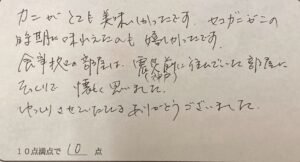 カニがとても美味しかったです。セコガニがこの
時期に味わえたのも嬉しかったです。
食事処の部屋は、震災前に住んでいた部屋に
そっくりで 懐しく思いました。
ゆっくりさせていただき ありがとうございました。
10点満点で 10 点